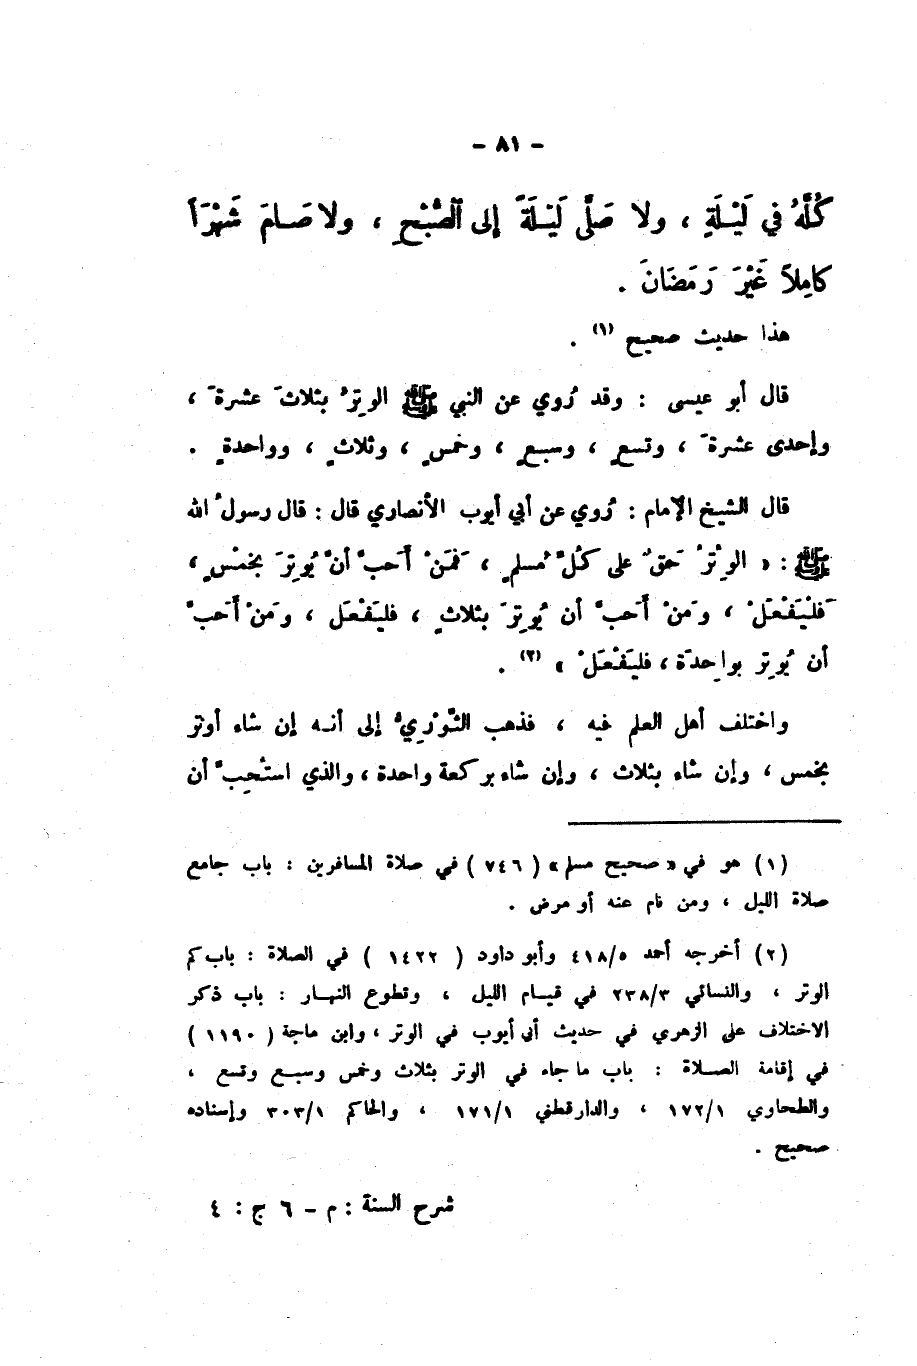 - ٨١ -
كُلَّهُ في لَيْلَةٍ ، ولا صَلَّى لَيْلَةً إلى الصُّبْحِ ، ولا صَامَ شَهْرَاً
كامِلاً غَيْرَ رَمَضَانَ .
هذا حديث صحيح (١) .
قال أبو عيسى : وقد رُوي عن النبي ﷺ الوِترُ بثلاثَ عشرةَ ،
وإحدى عشرةَ ، وتسعٍ ، وسبعٍ ، وخمسٍ ، وثلاثٍ ، وواحدةٍ .
قال الشيخ الإمام : رُوي عن أبي أيوب الأنصاري قال : قال رسولُ الله
ﷺ : « الوِتْرُ حَقٌ على كُلِّ مُسلمٍ ، فَمَنْ أَحبَّ أنْ يُوتِرَ بخمْسٍ ،
فَلْيَفْعَلْ ، وَمَنْ أَحَبَّ أن يُوتِرَ بثلاثٍ ، فليَفْعَل ، وَمَنْ أَحَبَّ
أن يُوتِر بواحِدَة ، فليَفْعَلْ » (٢) .
واختلف أهل العلم فيه ، فذهب الثَّوْرِيُّ إلى أنه إن شاء أوتر
بخمس ، وإن شاء بثلاث ، وإن شاء بركعة واحدة ، والذي استُحِبَّ أن
(١) هو في « صحيح مسلم » ( ٧٤٦ ) في صلاة المسافرين : باب جامع
صلاة الليل ، ومن نام عنه أو مرض .
(٢) أخرجه أحمد ٤١٨/٥ وأبو داود ( ١٤٢٢ ) في الصلاة : باب كم
الوتر ، والنسائي ٢٣٨/٣ في قيام الليل ، وتطوع النهار : باب ذكر
الاختلاف على الزهري في حديث أبي أيوب في الوتر ، وابن ماجة ( ١١٩٠ )
في إقامة الصلاة : باب ما جاء في الوتر بثلاث وخمس وسبع وتسع ،
والطحاوي ١٧٢/١ ، والدارقطني ١٧١/١ ، والحاكم ٣٠٣/١ وإسناده
صحيح .
شرح السنة : م - ٦ ج : ٤